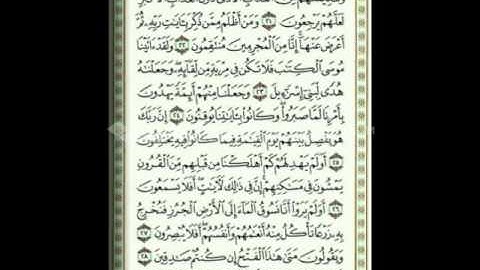 لَعَلَّهُمْ يَرْجِعُونَ ٢١ وَمَنْ أَظْلَمُ مِمَّن ذُكِّرَ بِـَٔايَٰتِ رَبِّهِۦ ثُمَّ
أَعْرَضَ عَنْهَآ إِنَّا مِنَ ٱلْمُجْرِمِينَ مُنتَقِمُونَ ٢٢ وَلَقَدْ ءَاتَيْنَا
مُوسَى ٱلْكِتَٰبَ فَلَا تَكُن فِى مِرْيَةٍ مِّن لِّقَآئِهِۦ وَجَعَلْنَٰهُ
هُدًى لِّبَنِىٓ إِسْرَٰٓءِيلَ ٢٣ وَجَعَلْنَا مِنْهُمْ أَئِمَّةً يَهْدُونَ
بِأَمْرِنَا لَمَّا صَبَرُوا۟ وَكَانُوا۟ بِـَٔايَٰتِنَا يُوقِنُونَ ٢٤ إِنَّ رَبَّكَ
هُوَ يَفْصِلُ بَيْنَهُمْ يَوْمَ ٱلْقِيَٰمَةِ فِيمَا كَانُوا۟ فِيهِ يَخْتَلِفُونَ
٢٥ أَوَلَمْ يَهْدِ لَهُمْ كَمْ أَهْلَكْنَا مِن قَبْلِهِم مِّنَ ٱلْقُرُونِ
يَمْشُونَ فِى مَسَٰكِنِهِمْ إِنَّ فِى ذَٰلِكَ لَـَٔايَٰتٍ أَفَلَا يَسْمَعُونَ
٢٦ أَوَلَمْ يَرَوْا۟ أَنَّا نَسُوقُ ٱلْمَآءَ إِلَى ٱلْأَرْضِ ٱلْجُرُزِ فَنُخْرِجُ
بِهِۦ زَرْعًا تَأْكُلُ مِنْهُ أَنْعَٰمُهُمْ وَأَنفُسُهُمْ أَفَلَا يُبْصِرُونَ ٢٧
وَيَقُولُونَ مَتَىٰ هَٰذَا ٱلْفَتْحُ إِن كُنتُمْ صَٰدِقِينَ ٢٨